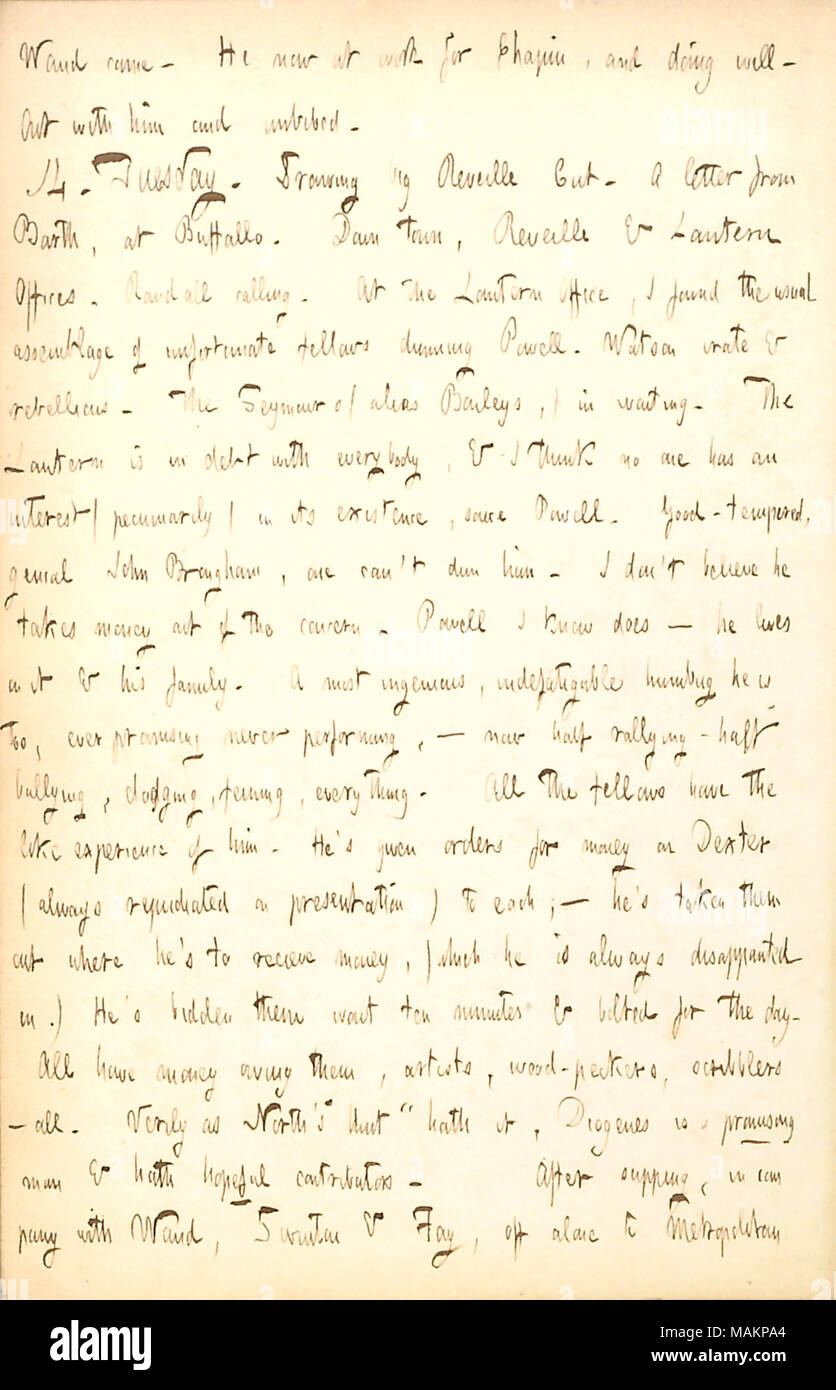 Waud came - He now at work for Chapin, and doing well -
Out with him and imbibed -
14. Tuesday. Drawing big Reveille Cut - A letter from
Barth, at Buffallo. Down town, Reveille & Lantern
Offices. Randall calling. At the Lantern Office, I found the usual
assemblage of unfortunate fellows dunning Powell. Watson irate &
rebellious - The Seymours (alias Baileys,) in waiting. The
Lantern is in debt with everybody, & I think no one has an
interest (pecuniarily) in its existence, save Powell. Good-tempered,
genial John Brougham, one can't dun him - I don't believe he
takes money out of the concern. Powell I know does — he lives
on it & his family. A most ingenious, indefatigable humbug he is
too, ever promising never performing, — now half rallying - half
bullying, dodging, feining, everything. All the fellows have the
like experience of him. He's given orders for money on Dexter
(always repudiated on presentation) to each; — he's taken them
out where he's to recieve money, (which he is always disappointed
in.) He's bidden them wait ten minutes & bolted for the day -
All have money owing them, artists, wood-peckers, scribblers
- all. Verily as North's "hint" hath it, Diogenes is a promising
man & hath hopeful contributors - After supping, in com
pany with Waud, Swinton & Fay, off alone to Metropolitan
alamy
alamy stock photo
MAKPA4
www.alamy.com